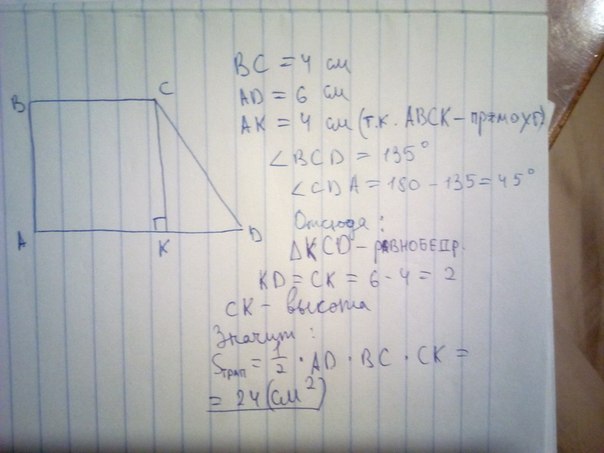 B
C
A
K
D
BC = 4 см
AD = 6 см
AK = 4 см (т.к. ABCK – прямоуг)
∠BCD = 135°
∠CDA = 180 – 135 = 45°
Отсюда:
△KCD – равнобедр.
KD = CK = 6 - 4 = 2
CK – высота
Значит:
Sтрап = 1/2 · AD · BC · CK =
= 24 (см²)